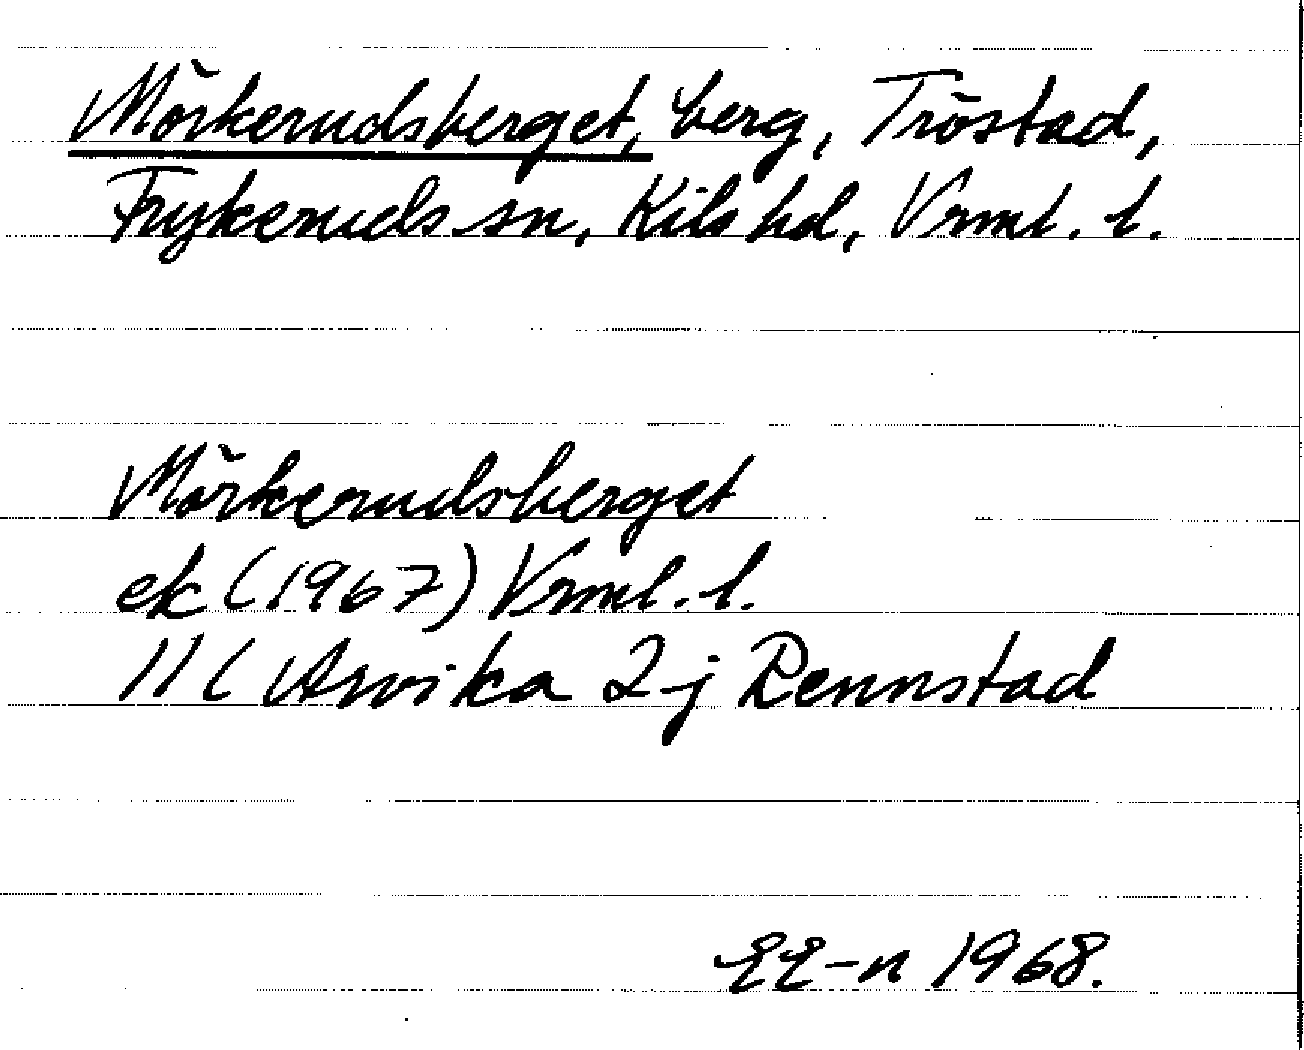 Mörkerudsberget, berg, Tröstad,
Frykeruds sn, Kils hd, Vrml. l.
Mörkerudsberget
ek (1967) Vrml. l.
11C Arvika 2j Rennstad
EE-n 1968.